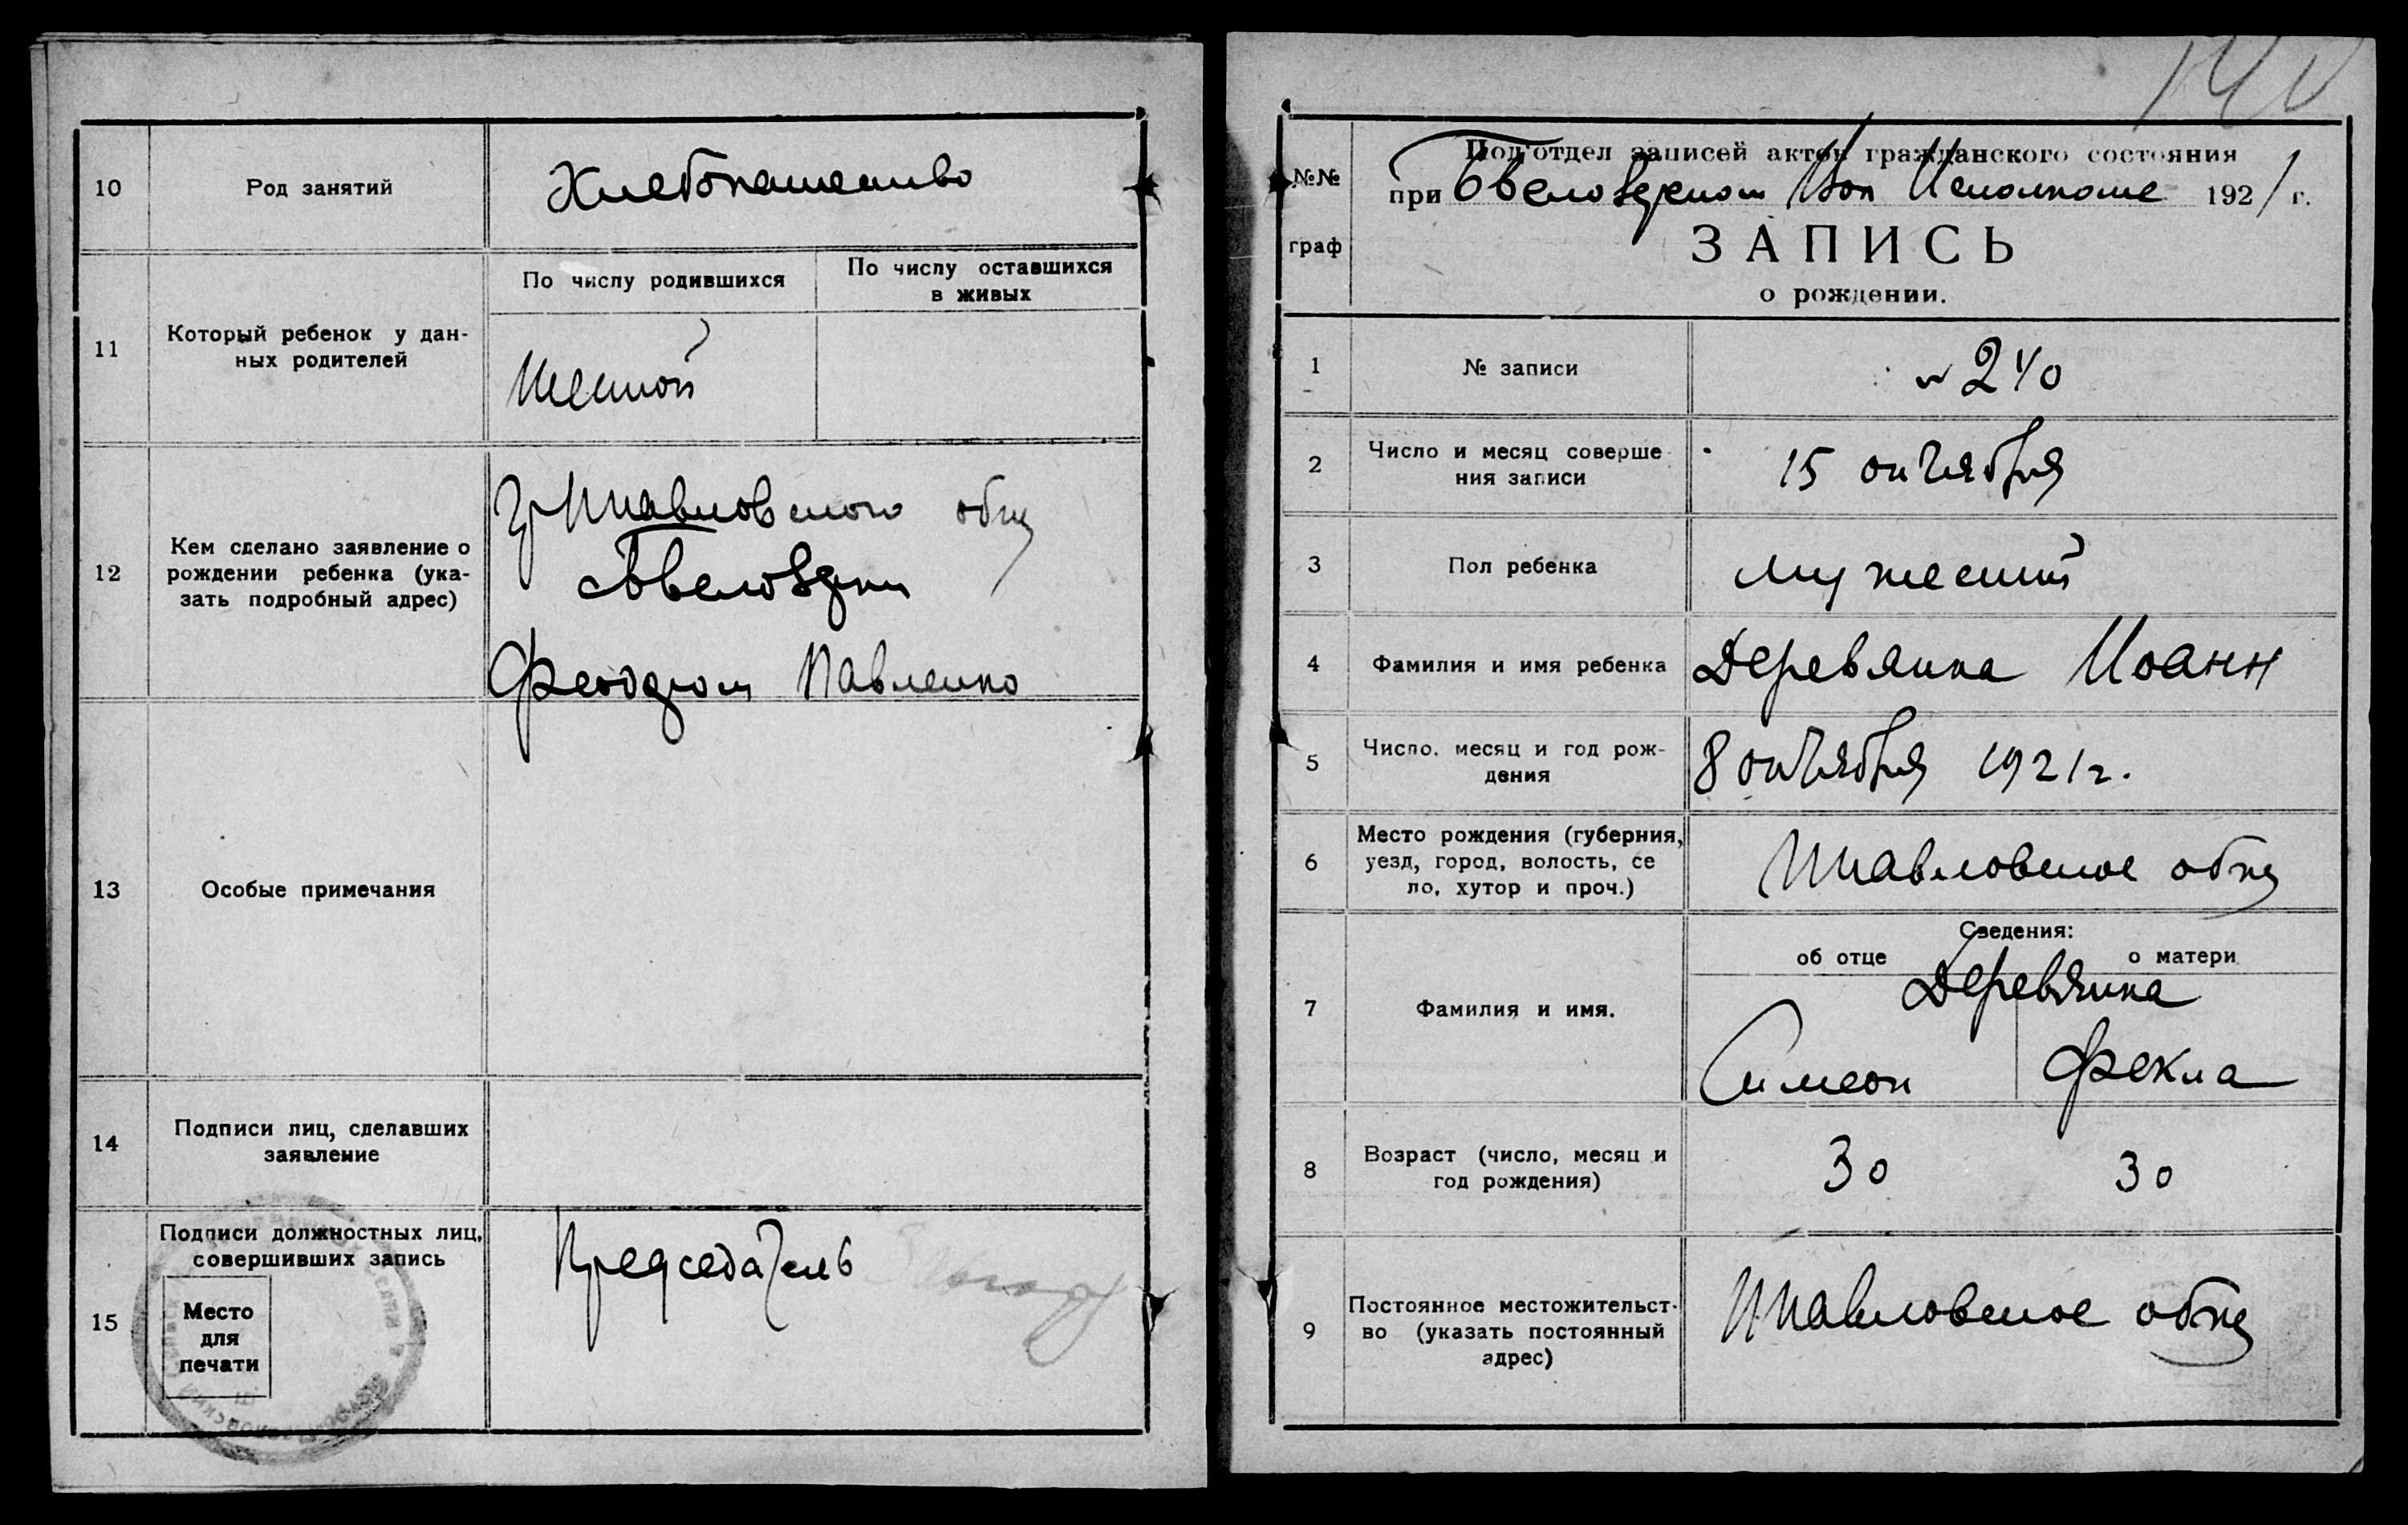 10
Род занятий
Хлебопашество
11
Который ребенок у дан-
ных родителей
По числу родившихся
По числу оставшихся
в живых
Шестой
12
Кем сделано заявление о
рождении ребенка (ука-
зать подробный адрес)
гр Шкавловского общ
Феодром Павленко
13
Особые примечания
14
Подписи лиц, сделавших
заявление
15
Подписи должностных лиц,
совершивших запись
Место
для
печати
Председатель
№№
граф
Под'отдел записей актов гражданского состояния
при Исполкоме 1921 г.
ЗАПИСЬ
о рождении.
1
№ записи
№ 240
2
Число и месяц соверше-
ния записи
15 октября
3
Пол ребенка
мужеский
4
Фамилия и имя ребенка
Деревянка Иоанн
5
Число, месяц и год рож-
дения
8 октября 1921 г.
6
Место рождения (губерния,
уезд, город, волость, се
ло, хутор и проч.)
Шкавловское общ
7
Фамилия и имя.
Сведения:
об отце
о матери
Деревянка
Симеон
Фекла
8
Возраст (число, месяц и
год рождения)
30
30
9
Постоянное местожительст-
во (указать постоянный
адрес)
Шкавловское общ